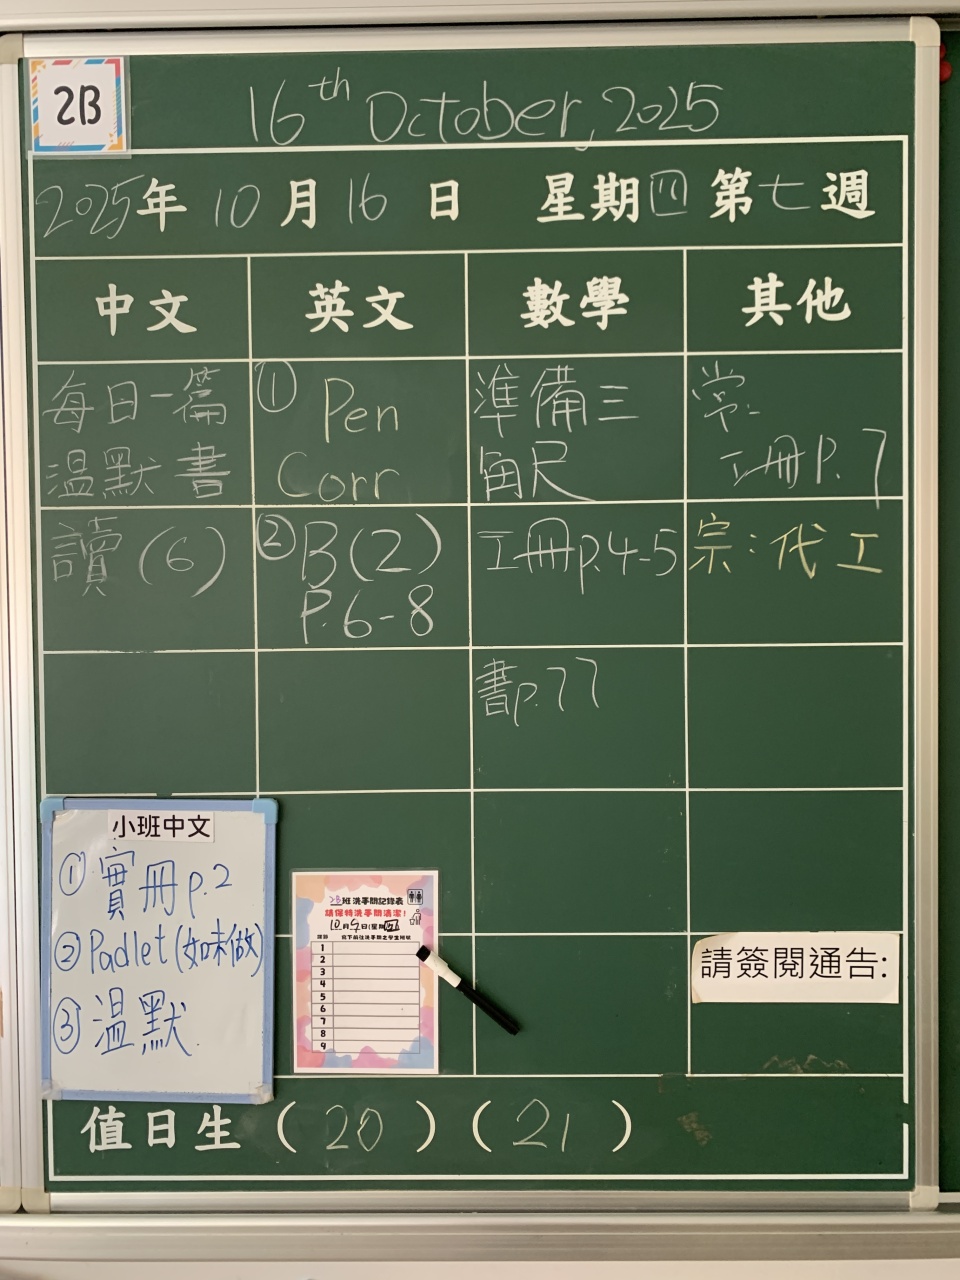 2B
16th October, 2025
2025年 10 月 16 日 星期四 第七週
中文 英文 數學 其他
每日一篇
溫默書
① Pen
Corr
準備三
角尺
常:
工冊P.7
讀(6)
② B(2)
P.6-8
工冊p.4-5
宗:代工
書p.77
小班中文
① 實冊p.2
② Padlet(如未做)
③ 溫默.
2B班 洗手間記錄表
請保持洗手間清潔!
1
2
3
4
5
6
7
8
9
請簽閱通告:
值日生 (20) (21)